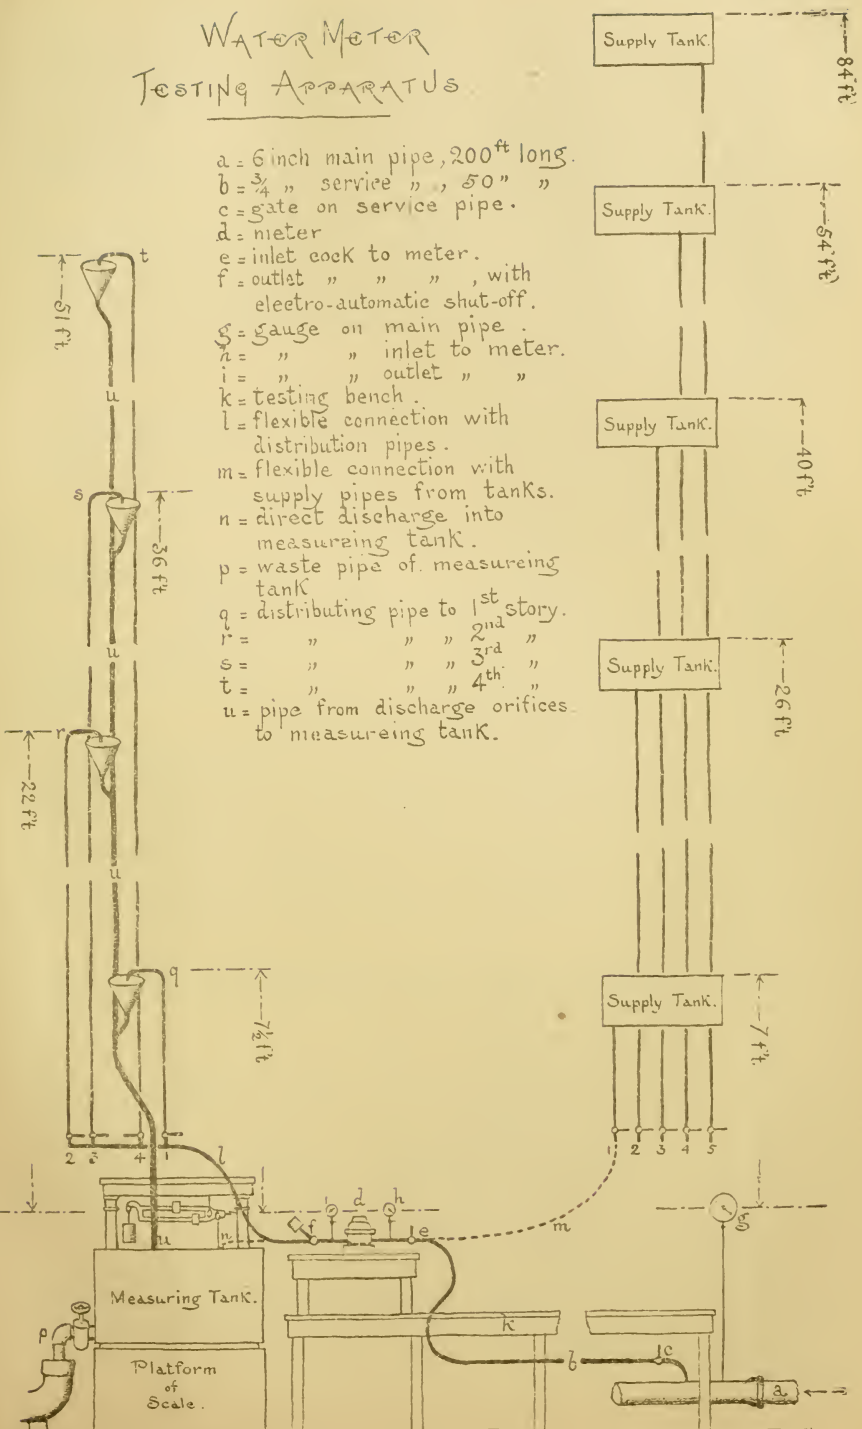 WATER METER
TESTING APPARATUS
a = 6 inch main pipe, 200ft long.
b = ¾ „ service „ , 50 „ „
c = gate on service pipe.
d = meter
e = inlet cock to meter.
f = outlet „ „ „ , with
electro-automatic shut-off.
g = gauge on main pipe.
h = „ „ inlet to meter.
i = „ „ outlet „ „
k = testing bench.
l = flexible connection with
distribution pipes.
m = flexible connection with
supply pipes from tanks.
n = direct discharge into
measureing tank.
p = waste pipe of measureing
tank
q = distributing pipe to 1st story.
r = „ „ „ 2nd „
s = „ „ „ 3rd „
t = „ „ „ 4th „
u = pipe from discharge orifices
to measureing tank.
Supply Tank.
84 ft
Supply Tank.
54 ft
Supply Tank.
40 ft
Supply Tank.
26 ft
Supply Tank.
7 ft
1 2 3 4 5
t
51 ft
u
s
36 ft
u
r
22 ft
u
q
7½ ft
2 3 4 1
l
i d h
f
e
m
g
n
u
Measuring Tank.
k
p
Platform
of
Scale.
b
c
a